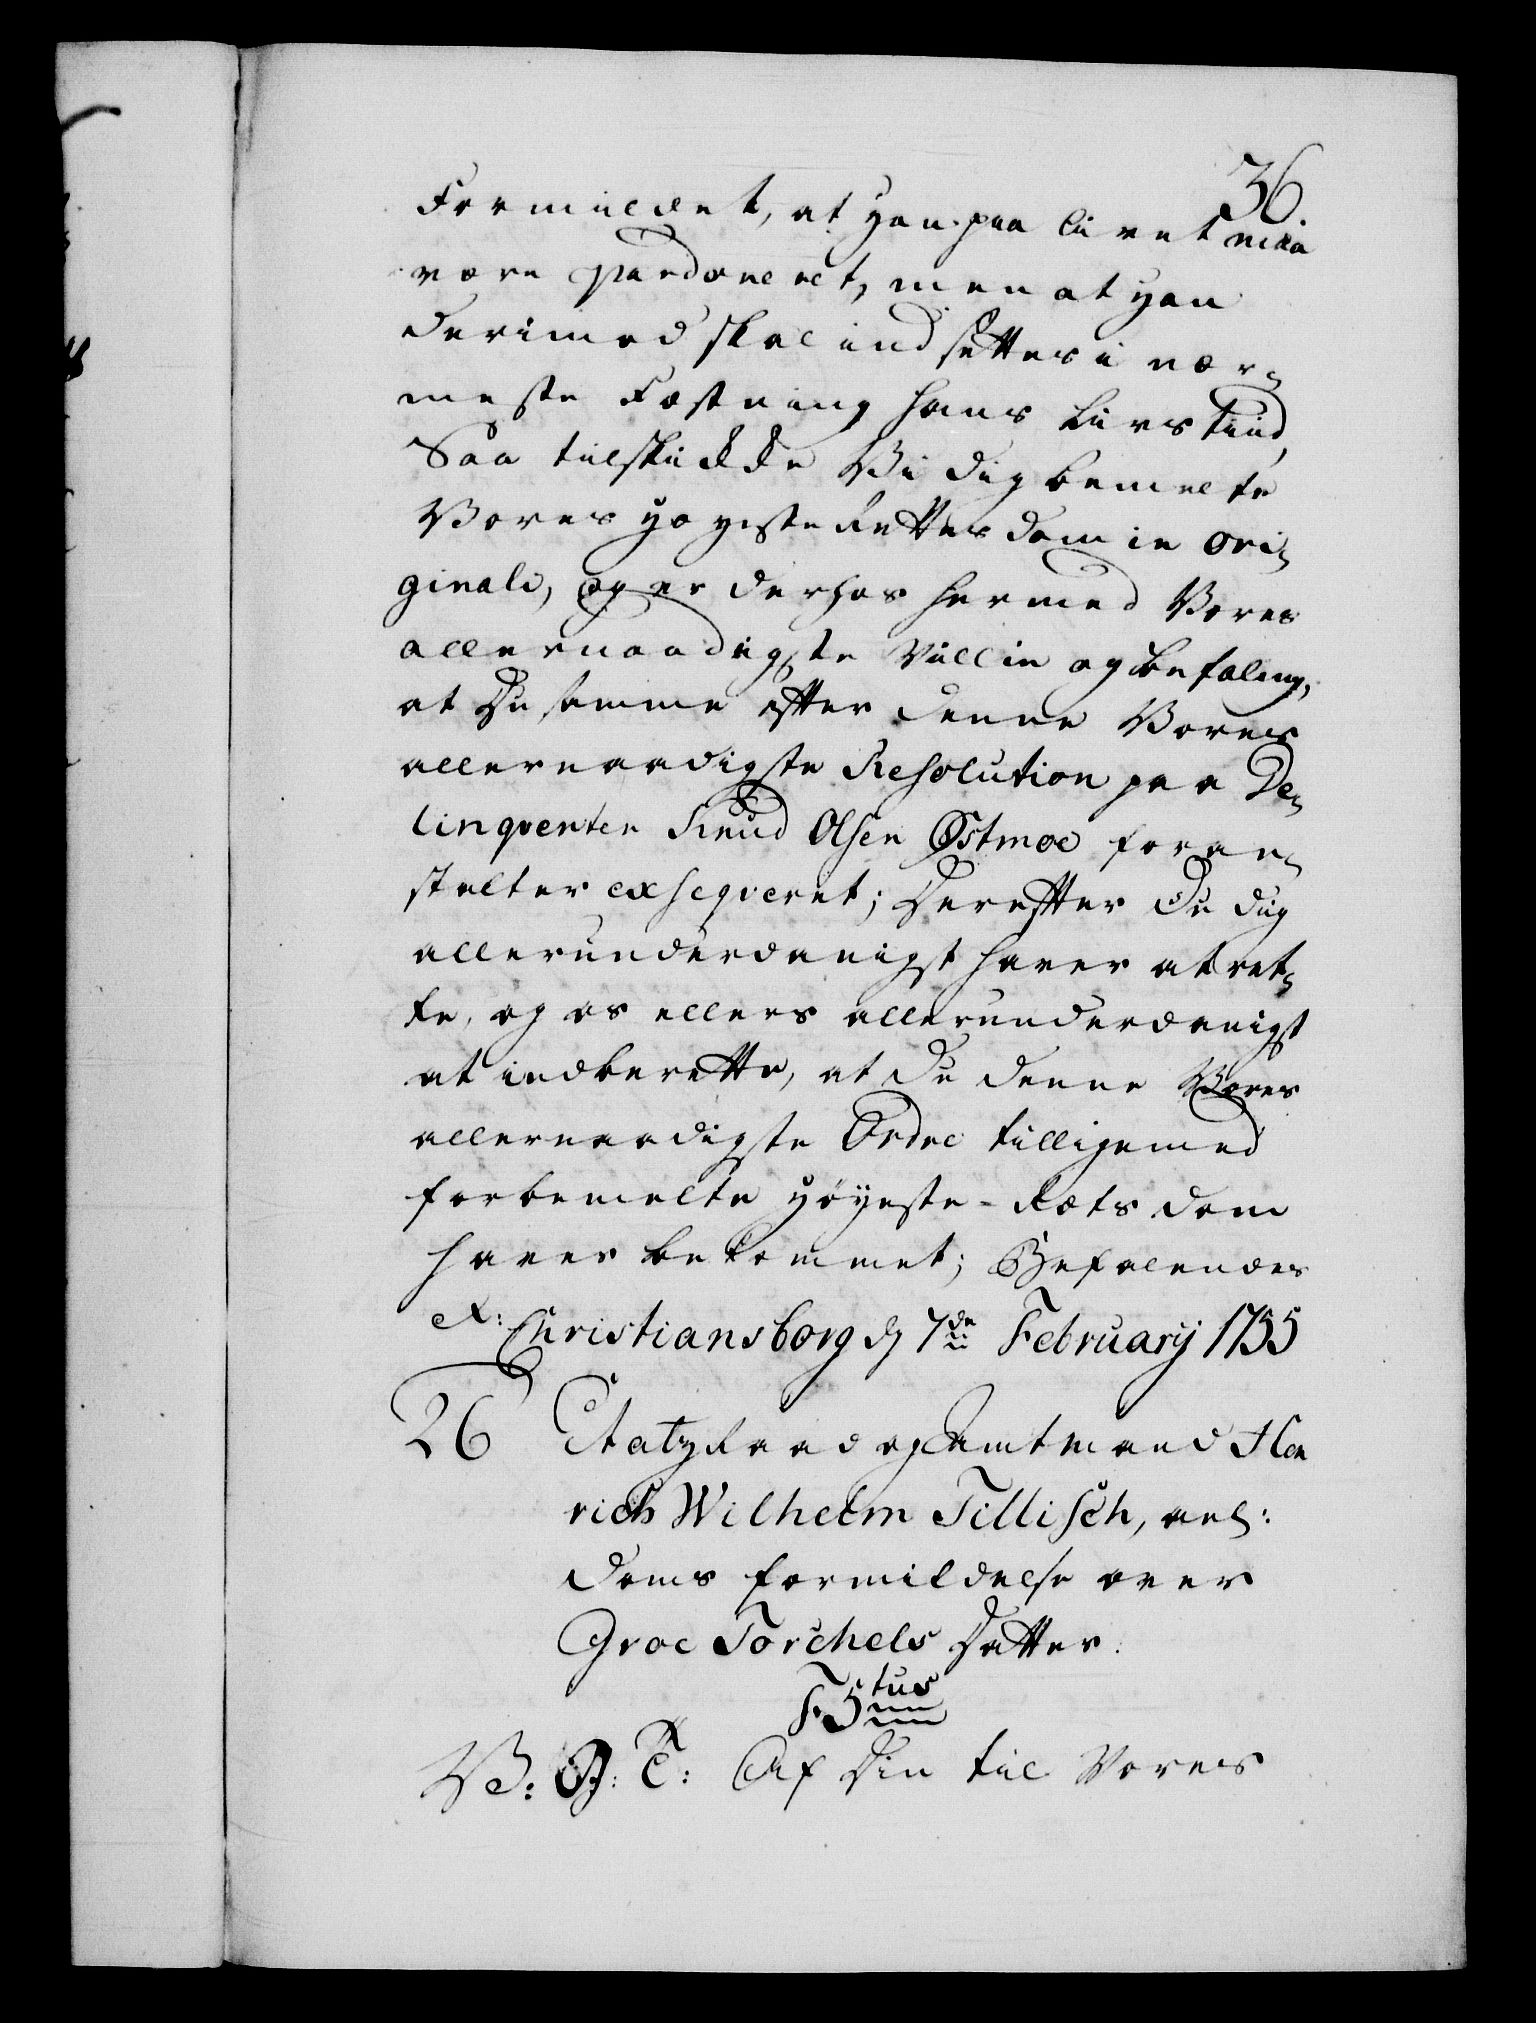 36.
Formildet, at han paa livet maa
være pardoneret, men at han
derimod skal indsættes i nær¬
meste Fæstning hans Livs tiid,
Saa tilskikke Vi dig bemelte
Vores høyeste Rettes dom in ori¬
ginali, og er derhos hermed Vores
allernaadigste Villie og befaling,
at Du samme efter denne Vores
allernaadigste Resolution paa De¬
linqventen Knud Olsen Østmoe foran¬
stalter exseqveret; Derefter Du dig
allerunderdanigst haver at ret¬
te, og os ellers allerunderdanigst
at indberette, at Du denne Vores
allernaadigste Ordre tilligemed
forbemelte høyeste-Rets dom
haver bekommet; Befalendes
&: Christiansborg d 7de February 1755
26 Etatzraad og Amtmand Hen
rich Wilhelm Tillisch, anl:
doms formildelse over
Groe Torchels Datter.
F5tus
V: G: T: Af Din til Vores